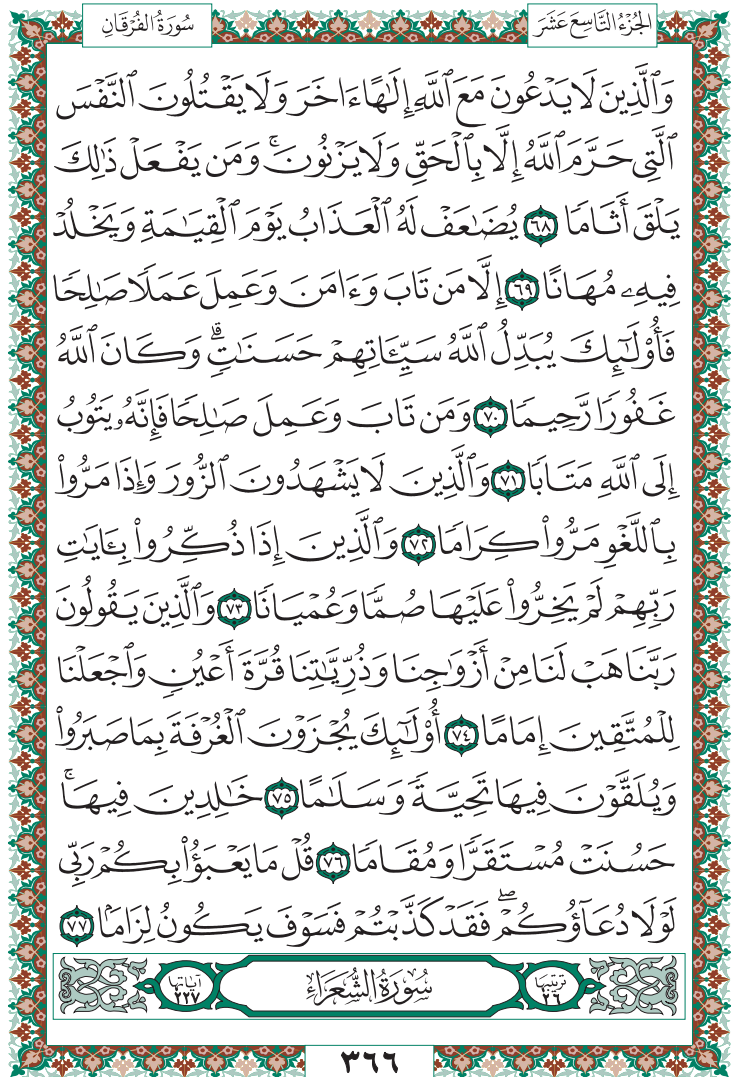 الجُزْءُ التَّاسِعَ عَشَرَ
سُورَةُ الفُرْقَانِ
وَٱلَّذِينَ لَا يَدْعُونَ مَعَ ٱللَّهِ إِلَٰهًا ءَاخَرَ وَلَا يَقْتُلُونَ ٱلنَّفْسَ
ٱلَّتِي حَرَّمَ ٱللَّهُ إِلَّا بِٱلْحَقِّ وَلَا يَزْنُونَۚ وَمَن يَفْعَلْ ذَٰلِكَ
يَلْقَ أَثَامًا ٦٨ يُضَٰعَفْ لَهُ ٱلْعَذَابُ يَوْمَ ٱلْقِيَٰمَةِ وَيَخْلُدْ
فِيهِۦ مُهَانًا ٦٩ إِلَّا مَن تَابَ وَءَامَنَ وَعَمِلَ عَمَلًا صَٰلِحًا
فَأُوْلَٰٓئِكَ يُبَدِّلُ ٱللَّهُ سَيِّـَٔاتِهِمْ حَسَنَٰتٍۗ وَكَانَ ٱللَّهُ
غَفُورًا رَّحِيمًا ٧٠ وَمَن تَابَ وَعَمِلَ صَٰلِحًا فَإِنَّهُۥ يَتُوبُ
إِلَى ٱللَّهِ مَتَابًا ٧١ وَٱلَّذِينَ لَا يَشْهَدُونَ ٱلزُّورَ وَإِذَا مَرُّواْ
بِٱللَّغْوِ مَرُّواْ كِرَامًا ٧٢ وَٱلَّذِينَ إِذَا ذُكِّرُواْ بِـَٔايَٰتِ
رَبِّهِمْ لَمْ يَخِرُّواْ عَلَيْهَا صُمًّا وَعُمْيَانًا ٧٣ وَٱلَّذِينَ يَقُولُونَ
رَبَّنَا هَبْ لَنَا مِنْ أَزْوَٰجِنَا وَذُرِّيَّٰتِنَا قُرَّةَ أَعْيُنٍ وَٱجْعَلْنَا
لِلْمُتَّقِينَ إِمَامًا ٧٤ أُوْلَٰٓئِكَ يُجْزَوْنَ ٱلْغُرْفَةَ بِمَا صَبَرُواْ
وَيُلَقَّوْنَ فِيهَا تَحِيَّةً وَسَلَٰمًا ٧٥ خَٰلِدِينَ فِيهَاۚ
حَسُنَتْ مُسْتَقَرًّا وَمُقَامًا ٧٦ قُلْ مَا يَعْبَؤُاْ بِكُمْ رَبِّي
لَوْلَا دُعَآؤُكُمْۖ فَقَدْ كَذَّبْتُمْ فَسَوْفَ يَكُونُ لِزَامًۢا ٧٧
ترتيبها ٢٦ سُورَةُ الشُّعَرَاءِ آياتها ٢٢٧
٣٦٦